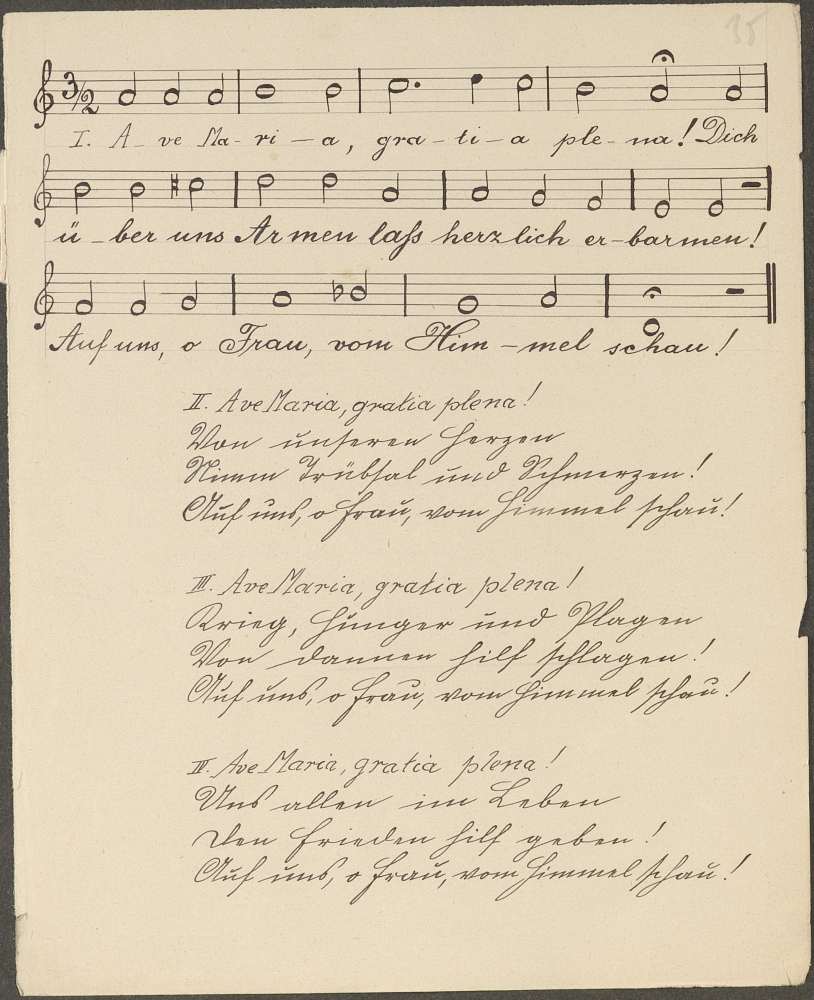 35
3/2
I. A- ve Ma- ri – a, gra – ti – a ple- na! Dich
ü – ber uns Armen laſs herzlich er-barmen!
Auf uns, o Frau, vom Him – mel schau!
II. Ave Maria, gratia plena!
Von unseren Herzen
Nimm Trübsal und Schmerzen!
Auf uns, o Frau, vom Himmel schau!
III. Ave Maria, gratia plena!
Krieg, Hunger und Plagen
Von dannen hilf schlagen!
Auf uns, o Frau, vom Himmel schau!
IV. Ave Maria, gratia plena!
Uns allen im Leben
Den Frieden hilf geben!
Auf uns, o Frau, vom Himmel schau!